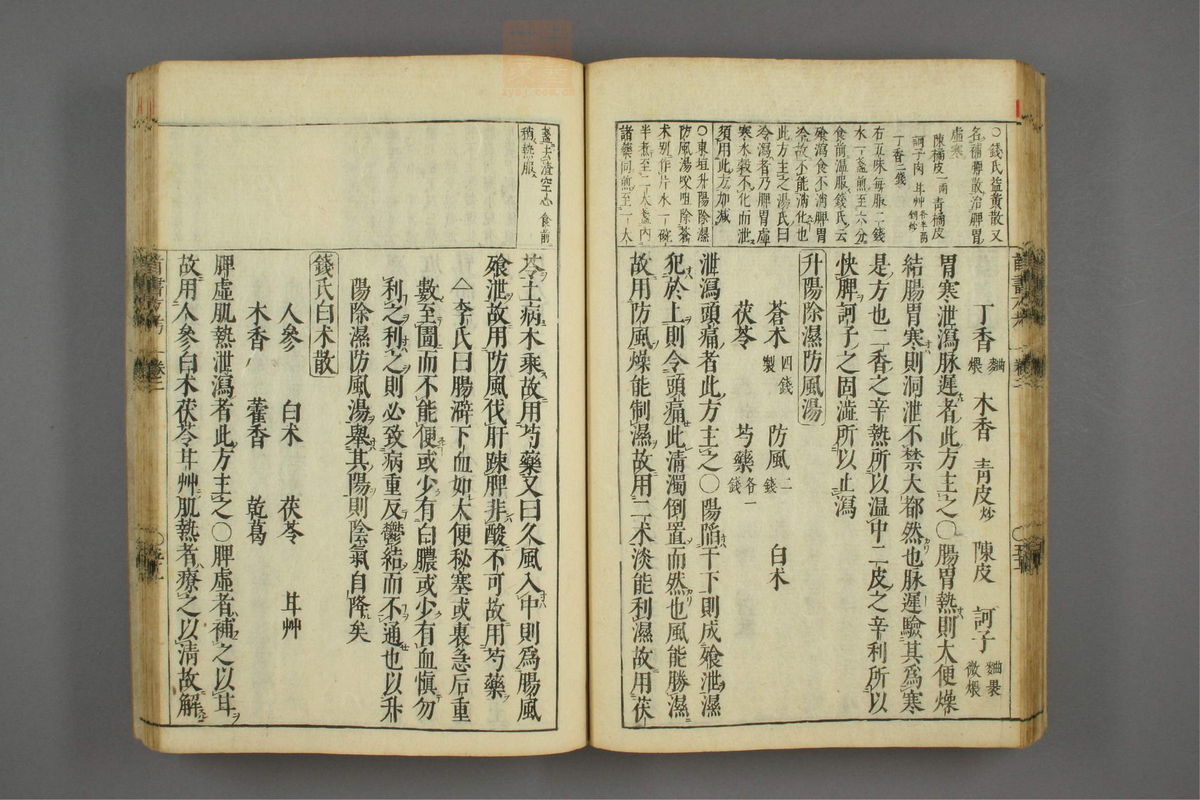 ○錢氏益黃散又
名補脾散治脾胃
虛寒
陳橘皮一兩 青橘皮
訶子肉 甘艸各半兩
丁香二錢
右五味每服二錢
水一盞煎至六分
食前溫服錢氏云
飱瀉食不消脾胃
冷故不能消化也
此方主之湯氏曰
冷瀉者乃脾胃虛
寒水穀不化而泄
須用此方加減
○東垣升陽除濕
防風湯㕮咀除蒼
术別作片水一碗
半煮至二大盞內
諸藥同煎至一大
丁香 木香 靑皮炒 陳皮 訶子
胃寒泄瀉脉遲者此方主之○腸胃熱則大便燥
結腸胃寒則洞泄不禁大都然也脉遲驗其爲寒
是方也二香之辛熱所以溫中二皮之辛利所以
快脾訶子之固澁所以止瀉
升陽除濕防風湯
蒼术四錢製 防風二錢 白术
茯苓 芍藥各一錢
泄瀉頭痛者此方主之○陽陷于下則成飱泄濕
犯於上則令頭痛此淸濁倒置而然也風能勝濕
故用防風燥能制濕故用二术淡能利濕故用茯
盞去渣空心食前
稍熱服
苓土病木乘故用芍藥又曰久風入中則爲腸風
飱泄故用防風伐肝踈脾非酸不可故用芍藥
△李氏曰腸澼下血如大便秘塞或裏急后重
數至圊而不能便或少有白膿或少有血愼勿
利之利之則必致病重反鬱結而不通也以升
陽除濕防風湯舉其陽則陰氣自降矣
錢氏白术散
人參 白术 茯苓 甘艸
木香 藿香 乾葛
脾虛肌熱泄瀉者此方主之○脾虛者補之以甘
故用人參白术茯苓甘艸肌熱者療之以淸故解